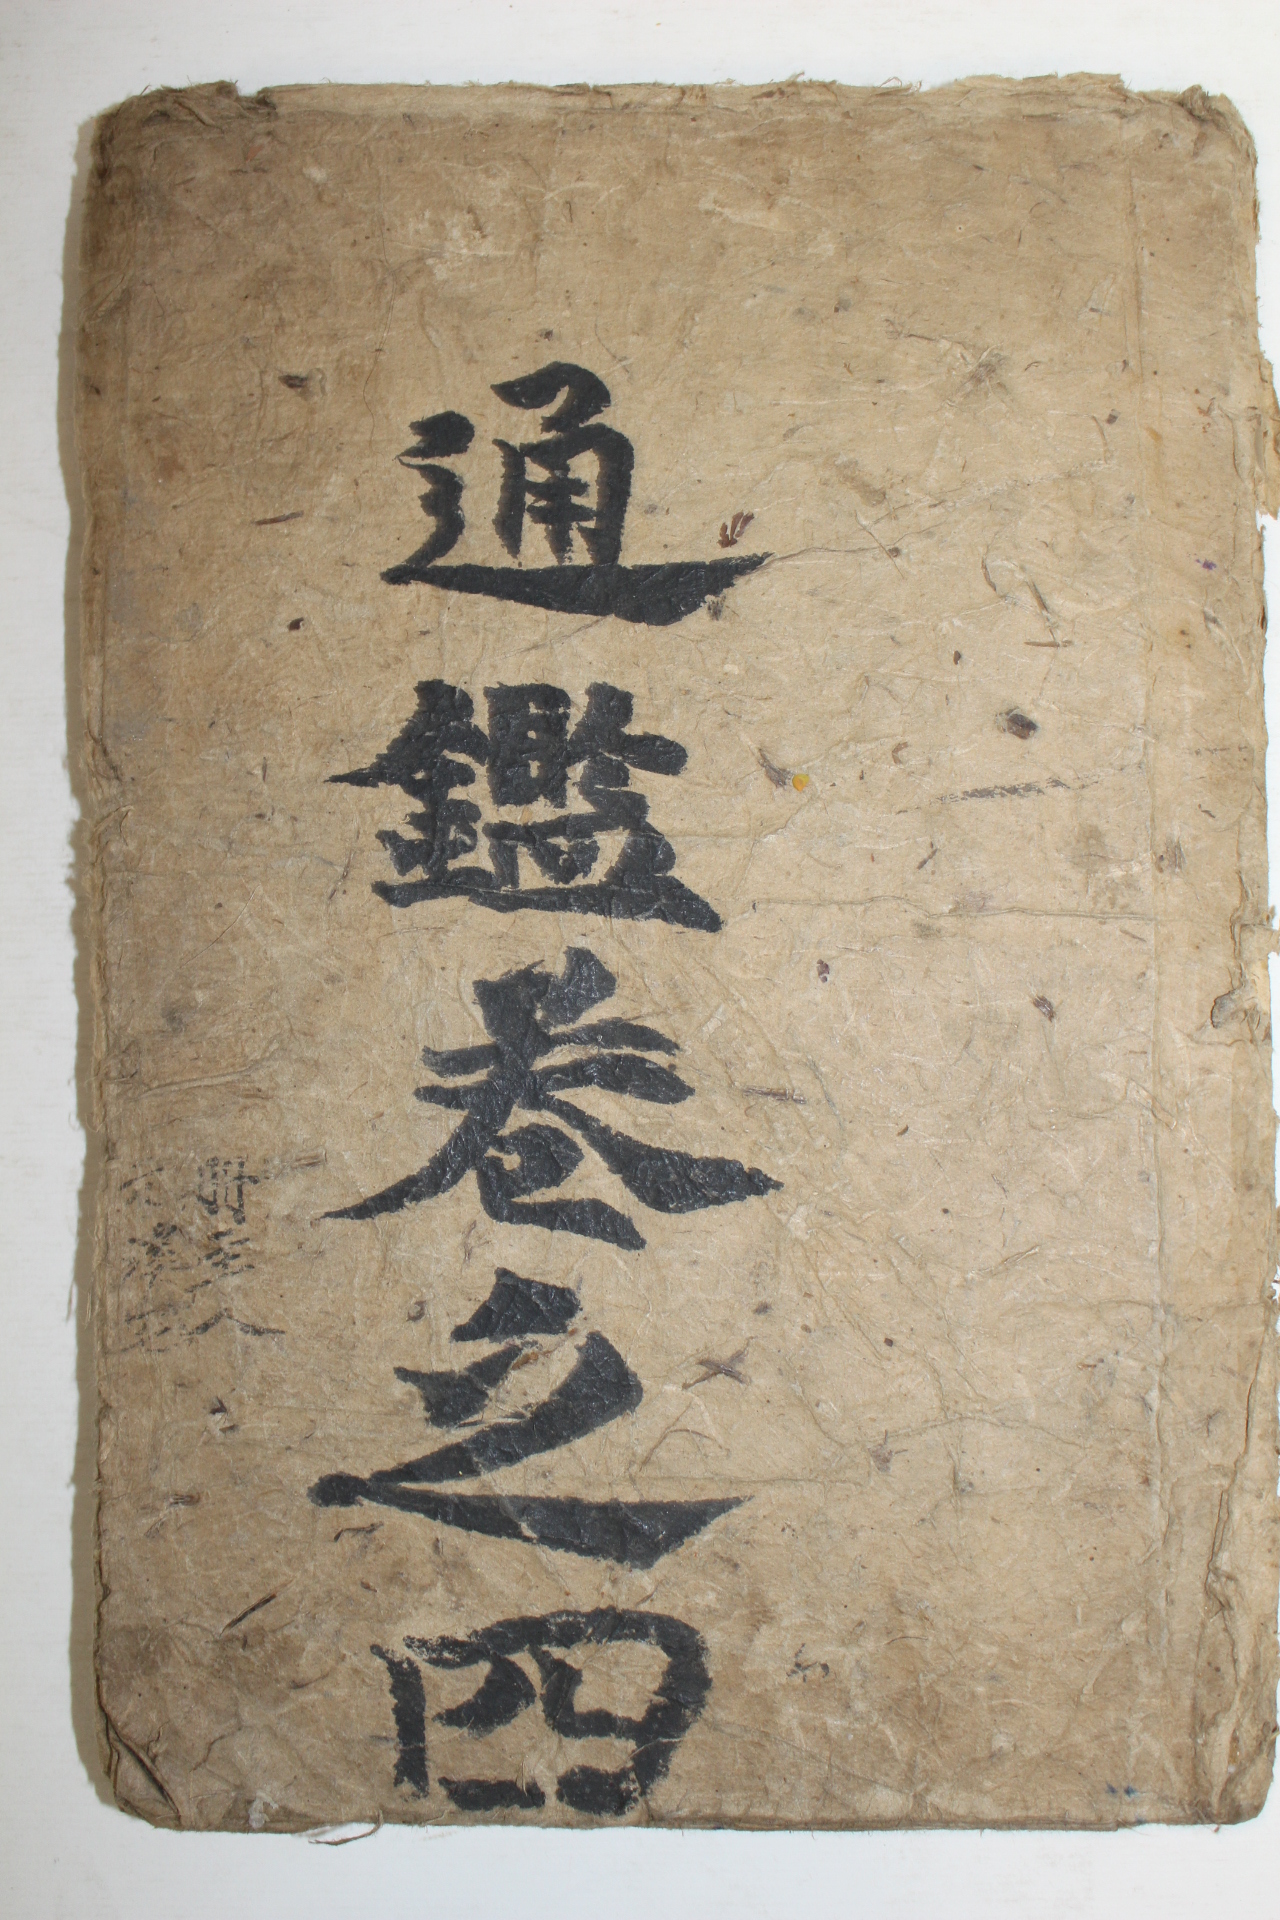 通鑑卷之四